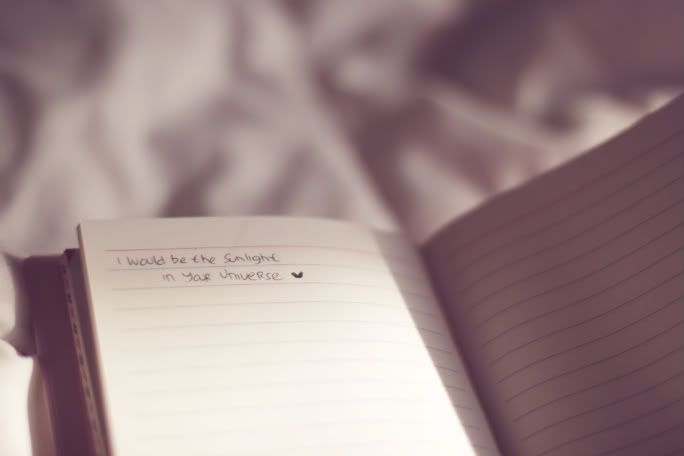 I would be the Sunlight
in Your Universe ♥